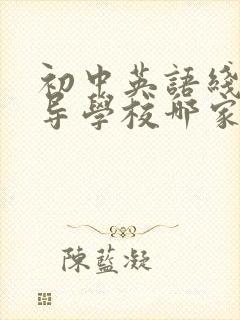 初中英語綫
导學校哪家
陳藍凝